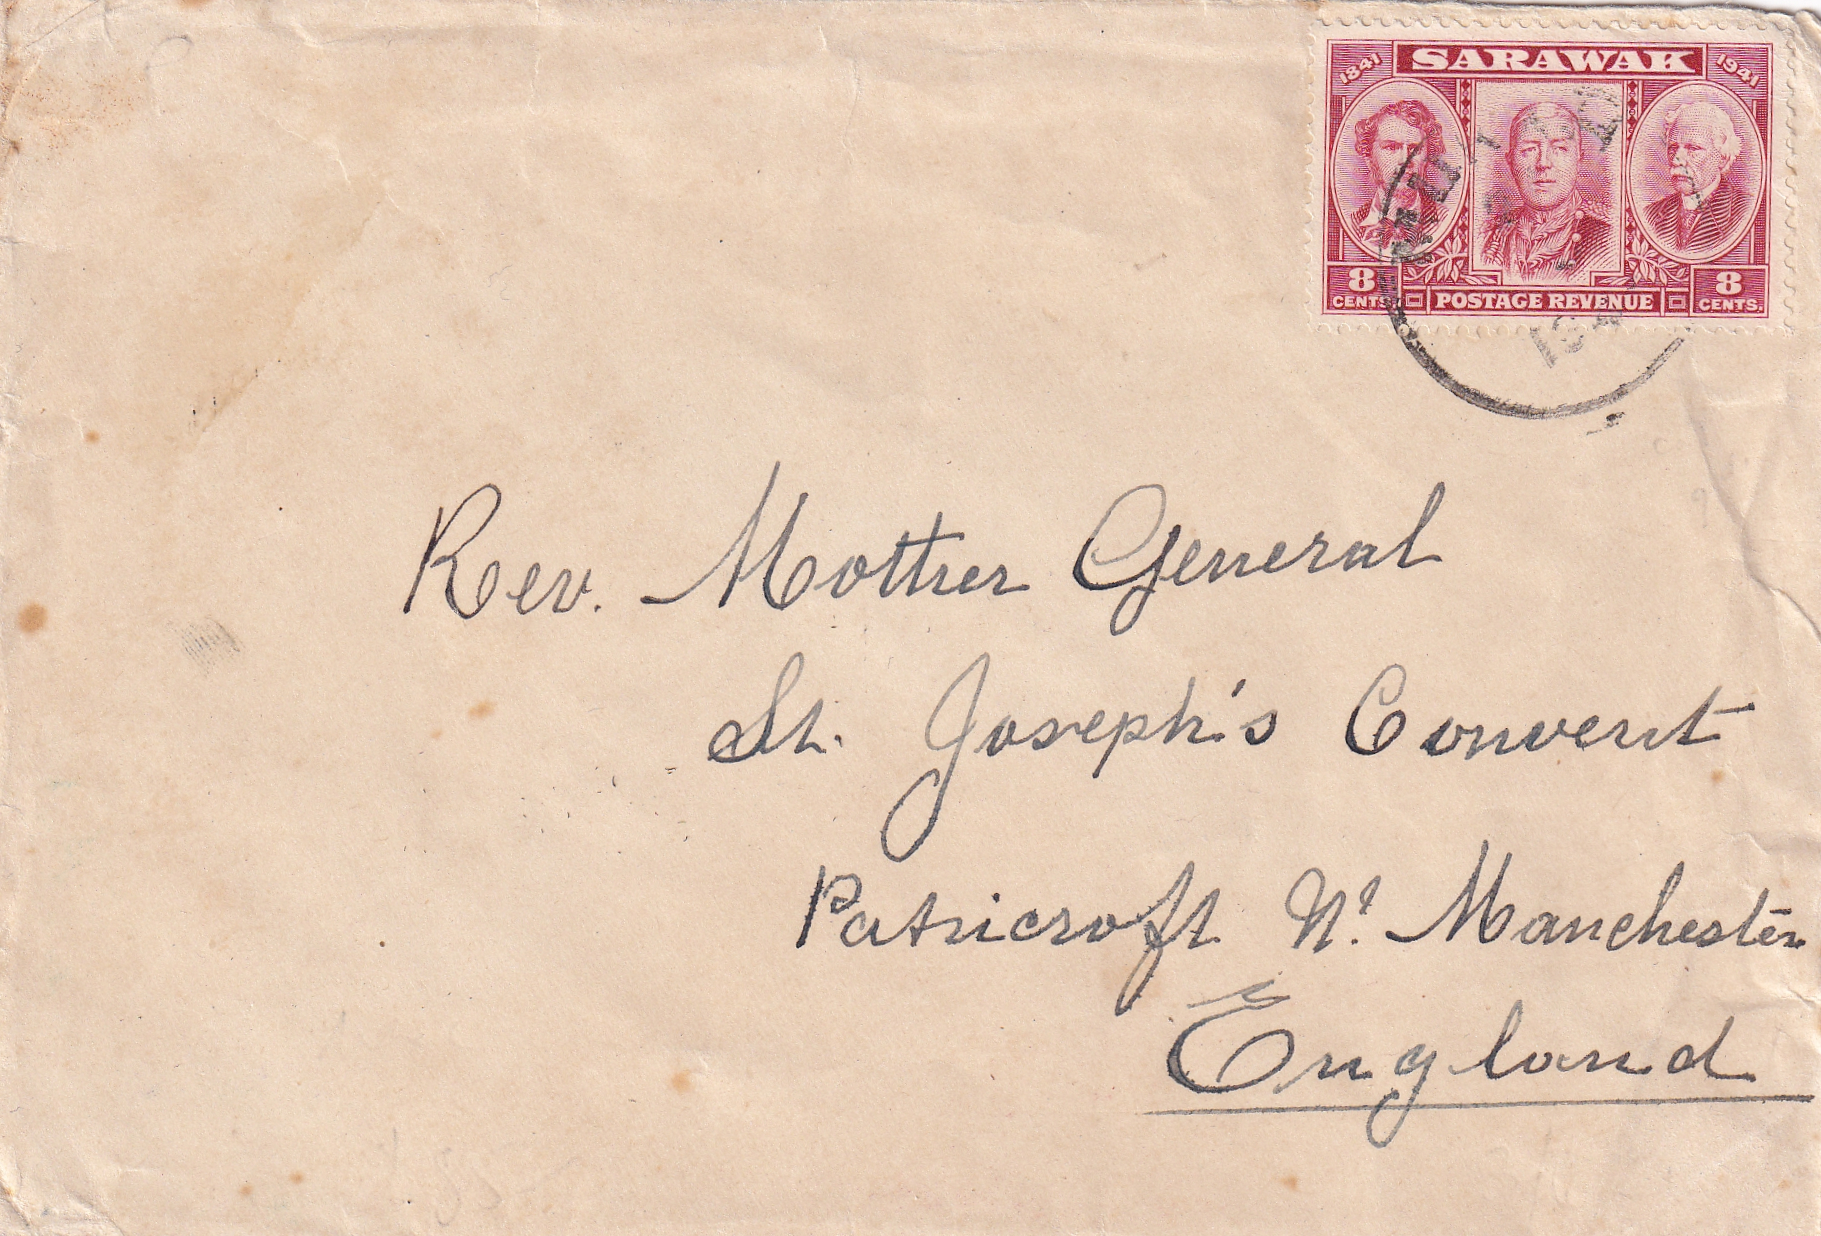 1841 SARAWAK 1941
8 CENTS. POSTAGE REVENUE 8 CENTS.
Rev. Mother General
St. Joseph's Convent
Patricroft Nr. Manchester
England